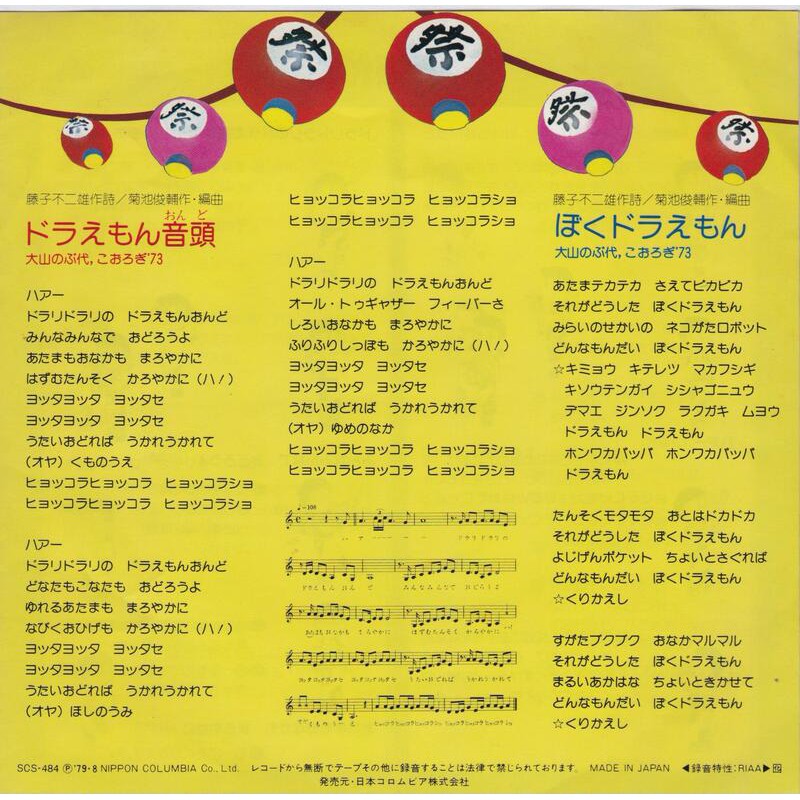 祭
祭
祭
祭
祭
祭
藤子不二雄作詩/菊池俊輔作・編曲
おんど
ドラえもん音頭
大山のぶ代,こおろぎ'73
ハアー
ドラリドラリの ドラえもんおんど
みんなみんなで おどろうよ
あたまもおなかも まろやかに
はずむたんそく かろやかに(ハ!)
ヨッタヨッタ ヨッタセ
ヨッタヨッタ ヨッタセ
うたいおどれば うかれうかれて
(オヤ)くものうえ
ヒョッコラヒョッコラ ヒョッコラショ
ヒョッコラヒョッコラ ヒョッコラショ
ハアー
ドラリドラリの ドラえもんおんど
どなたもこなたも おどろうよ
ゆれるあたまも まろやかに
なびくおひげも かろやかに(ハ!)
ヨッタヨッタ ヨッタセ
ヨッタヨッタ ヨッタセ
うたいおどれば うかれうかれて
(オヤ)ほしのうみ
ヒョッコラヒョッコラ ヒョッコラショ
ヒョッコラヒョッコラ ヒョッコラショ
ハアー
ドラリドラリの ドラえもんおんど
オール・トゥギャザー フィーバーさ
しろいおなかも まろやかに
ふりふりしっぽも かろやかに(ハ!)
ヨッタヨッタ ヨッタセ
ヨッタヨッタ ヨッタセ
うたいおどれば うかれうかれて
(オヤ)ゆめのなか
ヒョッコラヒョッコラ ヒョッコラショ
ヒョッコラヒョッコラ ヒョッコラショ
藤子不二雄作詩/菊池俊輔作・編曲
ぼくドラえもん
大山のぶ代,こおろぎ'73
あたまテカテカ さえてピカピカ
それがどうした ぼくドラえもん
みらいのせかいの ネコがたロボット
どんなもんだい ぼくドラえもん
☆キミョウ キテレツ マカフシギ
キソウテンガイ シシャゴニュウ
デマエ ジンソク ラクガキ ムヨウ
ドラえもん ドラえもん
ホンワカパッパ ホンワカパッパ
ドラえもん
たんそくモタモタ おとはドカドカ
それがどうした ぼくドラえもん
よじげんポケット ちょいとさぐれば
どんなもんだい ぼくドラえもん
☆くりかえし
すがたブクブク おなかマルマル
それがどうした ぼくドラえもん
まるいあかはな ちょいときかせて
どんなもんだい ぼくドラえもん
☆くりかえし
SCS-484 Ⓟ'79・8 NIPPON COLUMBIA Co., Ltd. レコードから無断でテープその他に録音することは法律で禁じられております。 MADE IN JAPAN ◀録音特性:RIAA▶
発売元・日本コロムビア株式会社